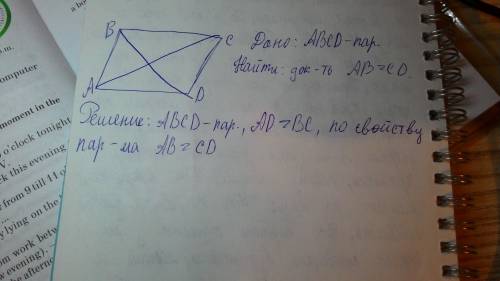 B
C
A
D
Дано: ABCD-пар.
Найти: док-ть AB=CD.
Решение: ABCD-пар., AD=BC, по свойству
пар-ма AB=CD
omputer
moment in the
o'clock tonight
ck this evening
from 9 till 11 o'
y lying on the
om work betw
w evening),
the afternoo